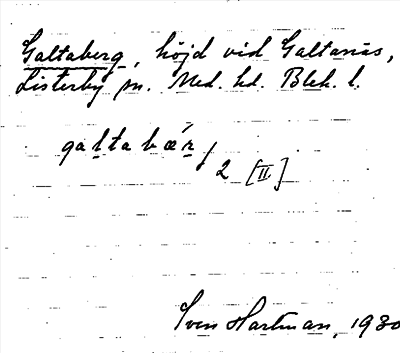 Galtaberg, höjd vid Galtanäs,
Listerby sn. Med. hd. Blek. l.
galtabæ´r/
2 [II]
Sven Hartman, 1930